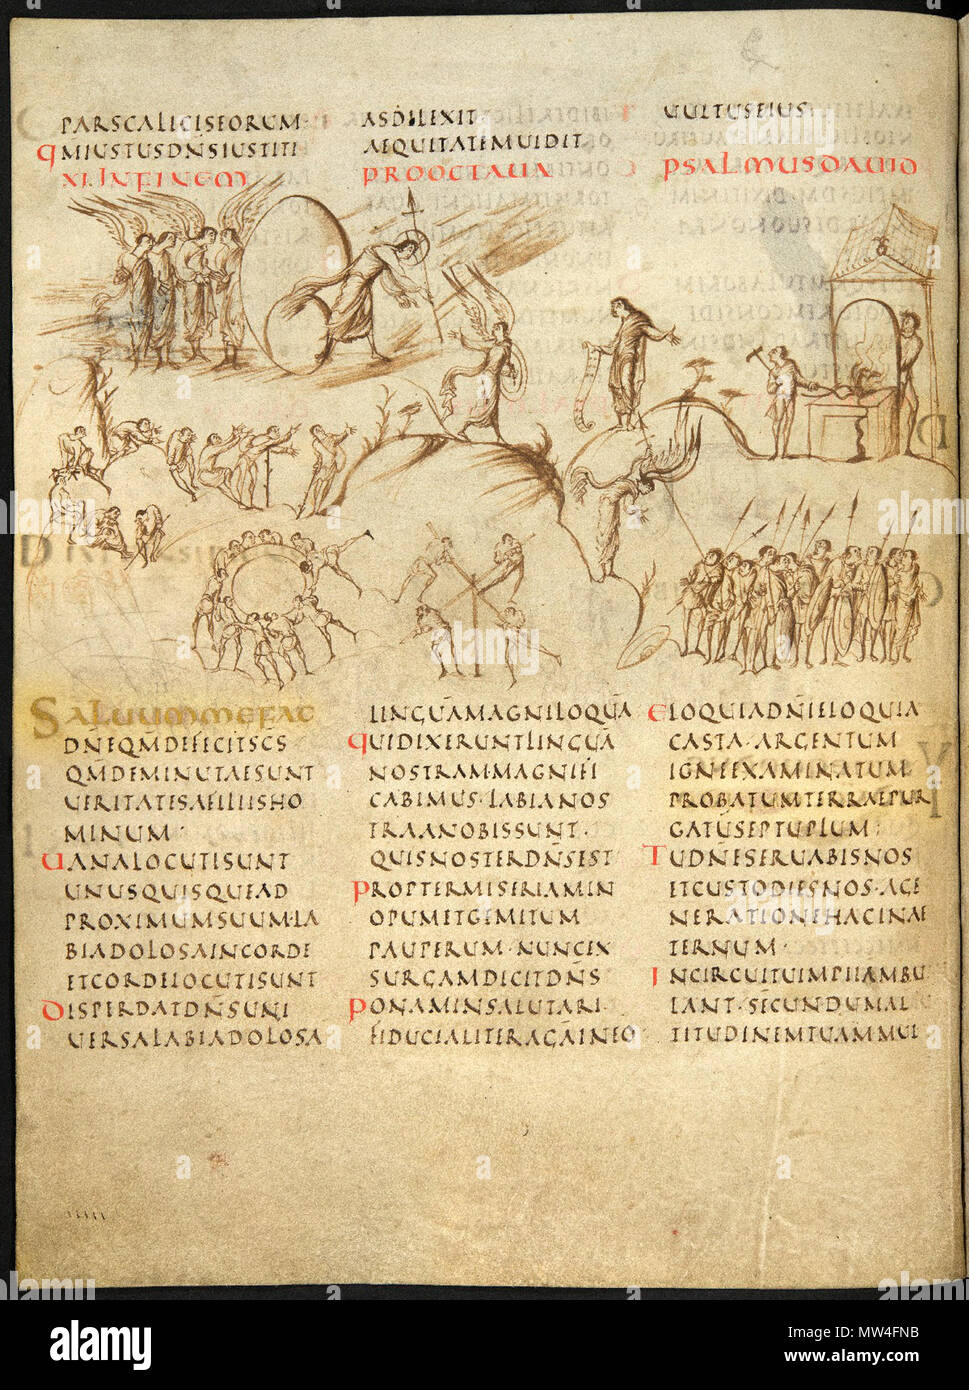 PARSCALICISEORUM
QMIUSTUSDN̄SIUSTITI
ASDILEXIT
AEQUITATEMUIDIT
UULTUSEIUS
XI. INFINEM
PROOCTAUA
PSALMUSDAUID
SALUUMMEFAC
DN̄EQM̄DEFECITSC̄S
QM̄DEMINUTAESUNT
UERITATESAFILIISHO
MINUM·
UANALOCUTISUNT
UNUSQUISQUEAD
PROXIMUMSUUM·LA
BIADOLOSAINCORDE
ETCORDELOCUTISUNT
DISPERDATDN̄SUNI
UERSALABIADOLOSA
LINGUĀMAGNILOQUĀ
QUIDIXERUNTLINGUĀ
NOSTRAMMAGNIFI
CABIMUS·LABIANOS
TRAANOBISSUNT·
QUISNOSTERDN̄SEST
PROPTERMISERIAMIN
OPUMETGEMITUM
PAUPERUM·NUNCEX
SURGAMDICITDN̄S
PONAMINSALUTARI·
FIDUCIALITERAGAINEO
ELOQUIADN̄IELOQUIA
CASTA·ARGENTUM
IGNEEXAMINATUM
PROBATUMTERRAEPUR
GATŪSEPTUPLUM·
TUDN̄ESERUABISNOS
ETCUSTODIESNOS·AGE
NERATIONEHACINAE
TERNUM·
INCIRCUITUIMPIIAMBU
LANT·SECUNDUMAL
TITUDINEMTUAMMUL
alamy
Image ID: MW4FNB
www.alamy.com